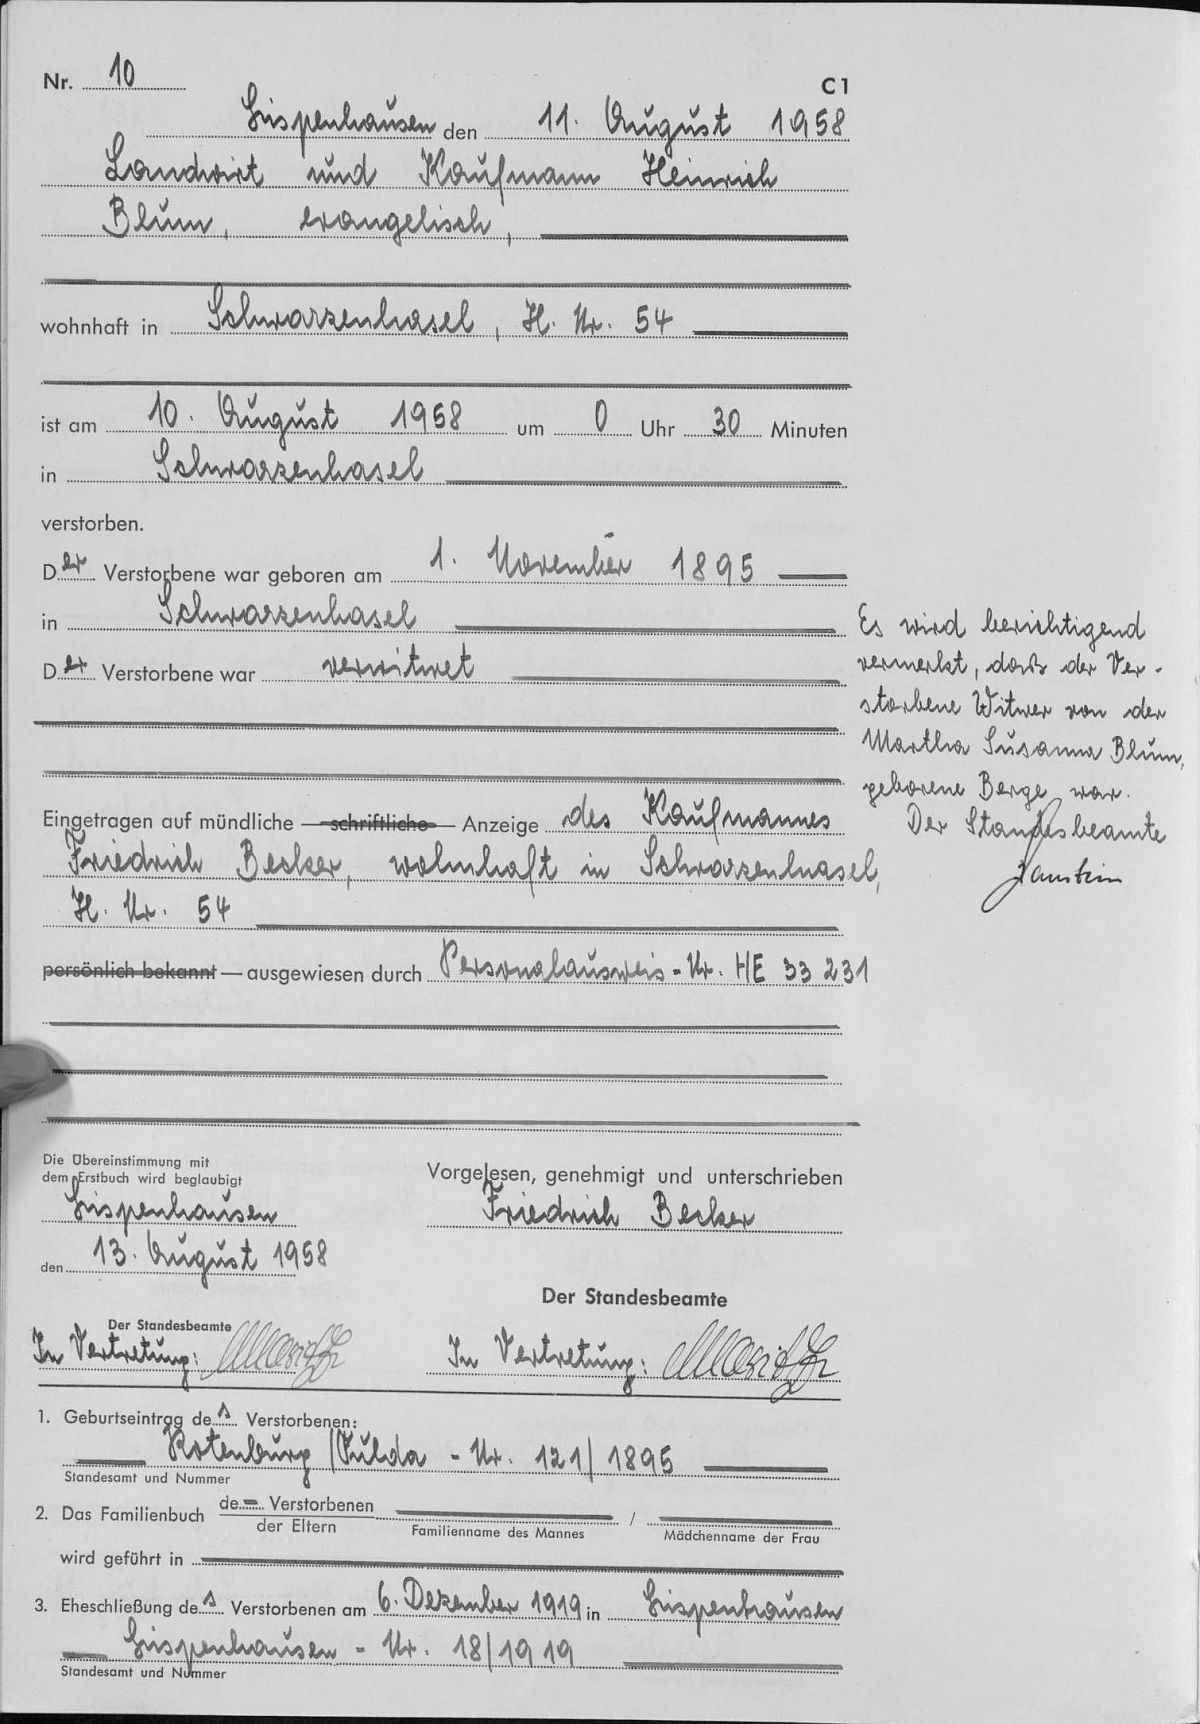 Nr. 10
C1
Lispenhausen den 11. August 1958
Landwirt und Kaufmann Heinrich
Blum, evangelisch,
wohnhaft in Schwarzenhasel, H. Nr. 54
ist am 10. August 1958 um 0 Uhr 30 Minuten
in Schwarzenhasel
verstorben.
Der Verstorbene war geboren am 1. November 1895
in Schwarzenhasel
Der Verstorbene war verwitwet
Es wird berichtigend
vermerkt, daß der Ver-
storbene Witwer von der
Martha Susanna Blum,
geborene Berge war.
Der Standesbeamte
Eingetragen auf mündliche — schriftliche — Anzeige des Kaufmannes
Friedrich Becker, wohnhaft in Schwarzenhasel,
H. Nr. 54
persönlich bekannt — ausgewiesen durch Personalausweis-Nr. HE 33 231
Die Übereinstimmung mit
dem Erstbuch wird beglaubigt
Lispenhausen
den 13. August 1958
Der Standesbeamte
In Vertretung:
Vorgelesen, genehmigt und unterschrieben
Friedrich Becker
Der Standesbeamte
In Vertretung:
1. Geburtseintrag des Verstorbenen:
Rotenburg/Fulda - Nr. 121/1895
Standesamt und Nummer
2. Das Familienbuch de Verstorbenen / der Eltern
Familienname des Mannes
Mädchenname der Frau
wird geführt in
3. Eheschließung des Verstorbenen am 6. Dezember 1919 in Lispenhausen
Lispenhausen - Nr. 18/1919
Standesamt und Nummer